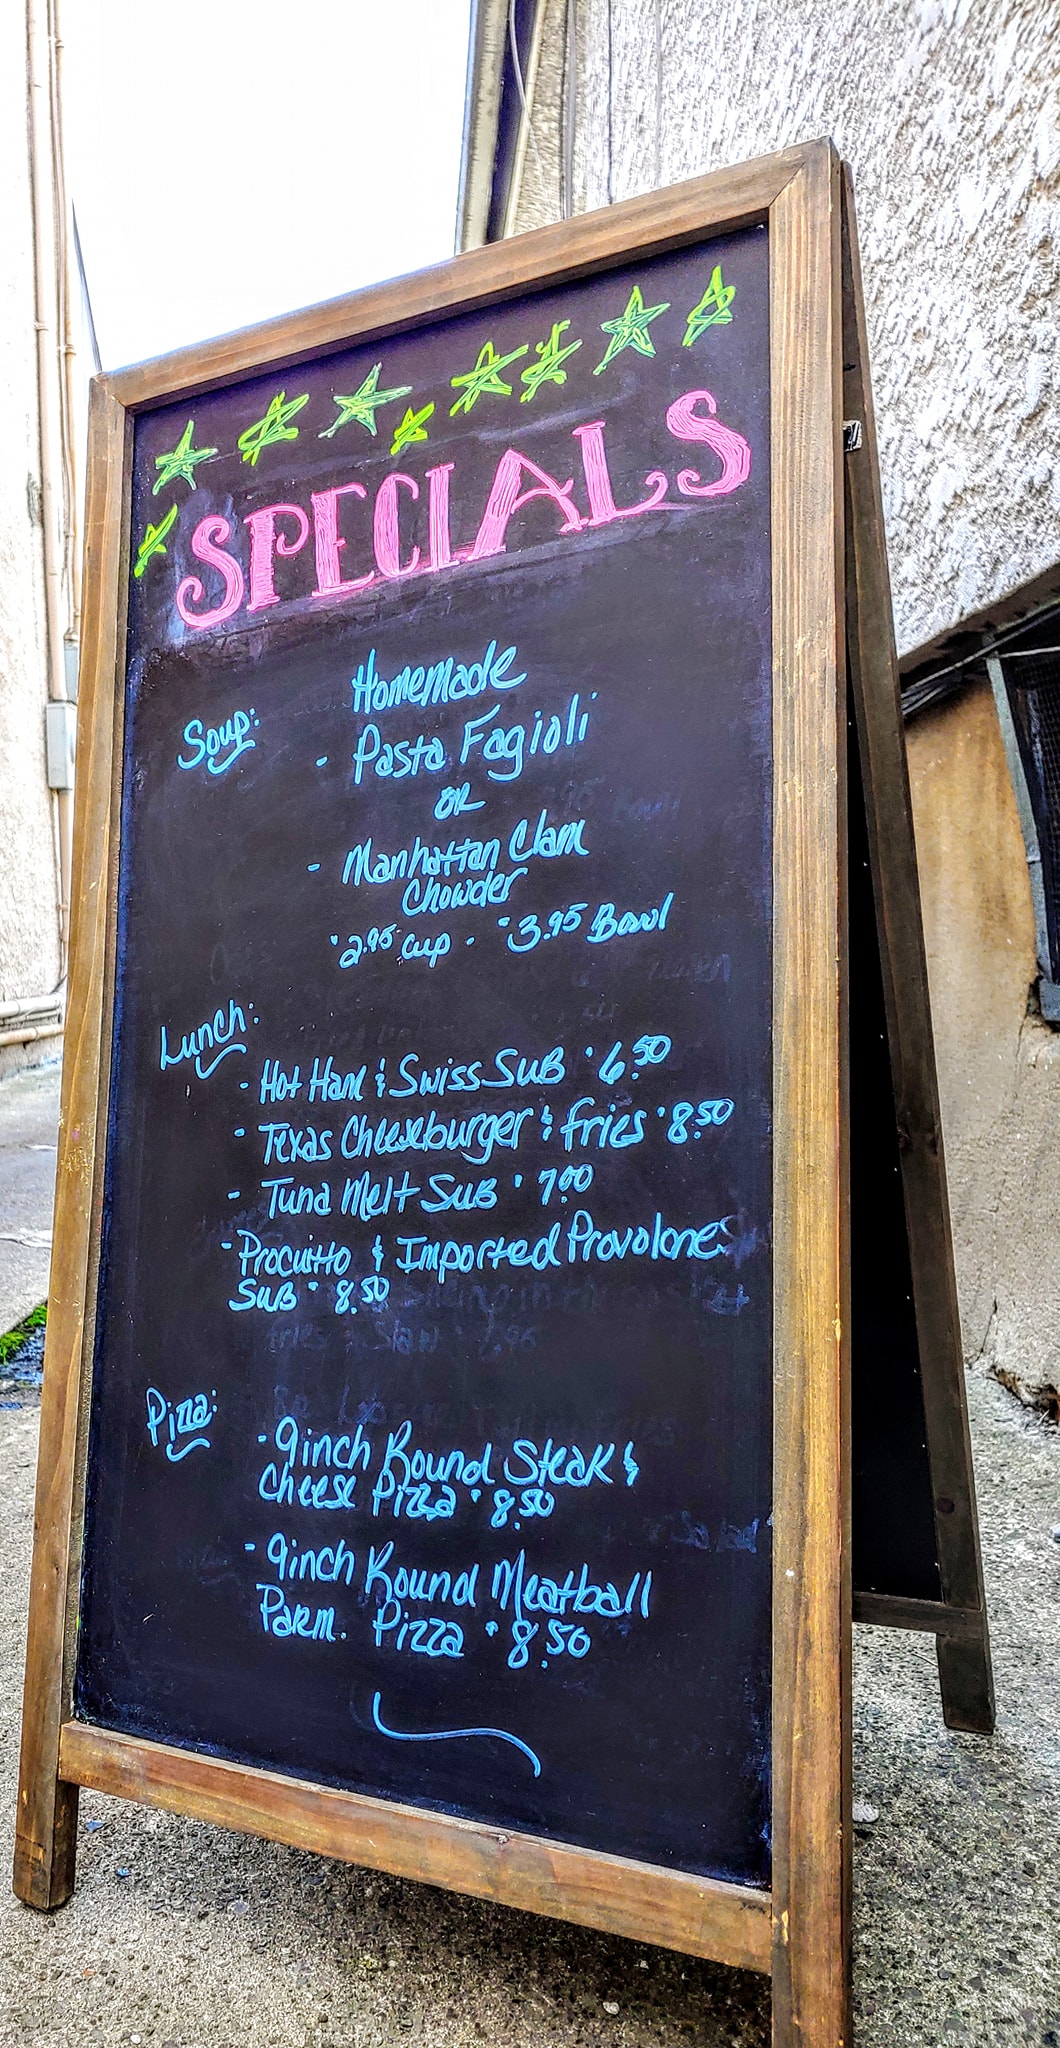 SPECIALS
Homemade
Soup: - Pasta Fagioli
OR
- Manhattan Clam
Chowder
2.95 cup - 3.95 Bowl
Lunch:
- Hot Ham & Swiss Sub 6.50
- Texas Cheeseburger & fries 8.50
- Tuna Melt Sub 7.00
- Procuitto & Imported Provolone
Sub 8.50
Pizza: - 9inch Round Steak &
Cheese Pizza 8.50
- 9inch Round Meatball
Parm. Pizza 8.50